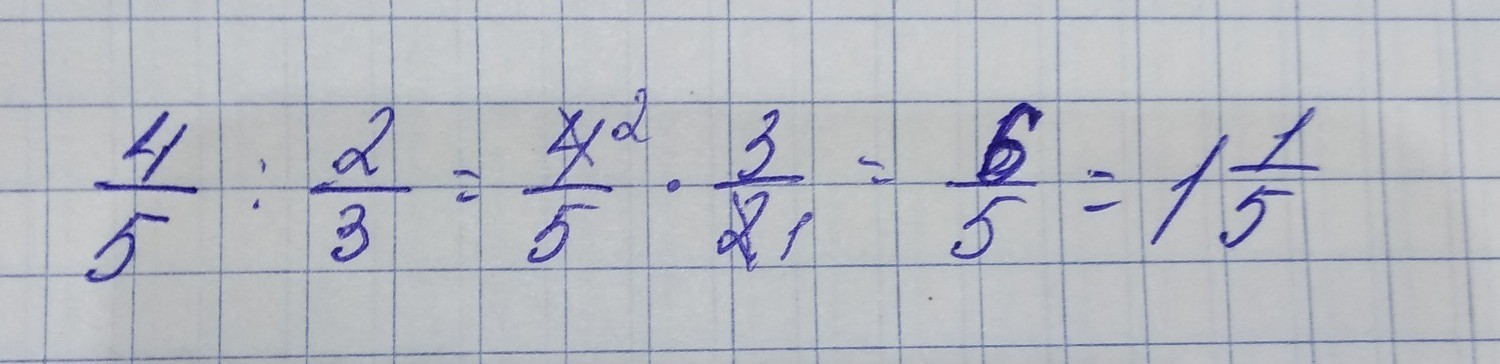 4/5 : 2/3 = 4²/5 · 3/2₁ = 6/5 = 1 1/5